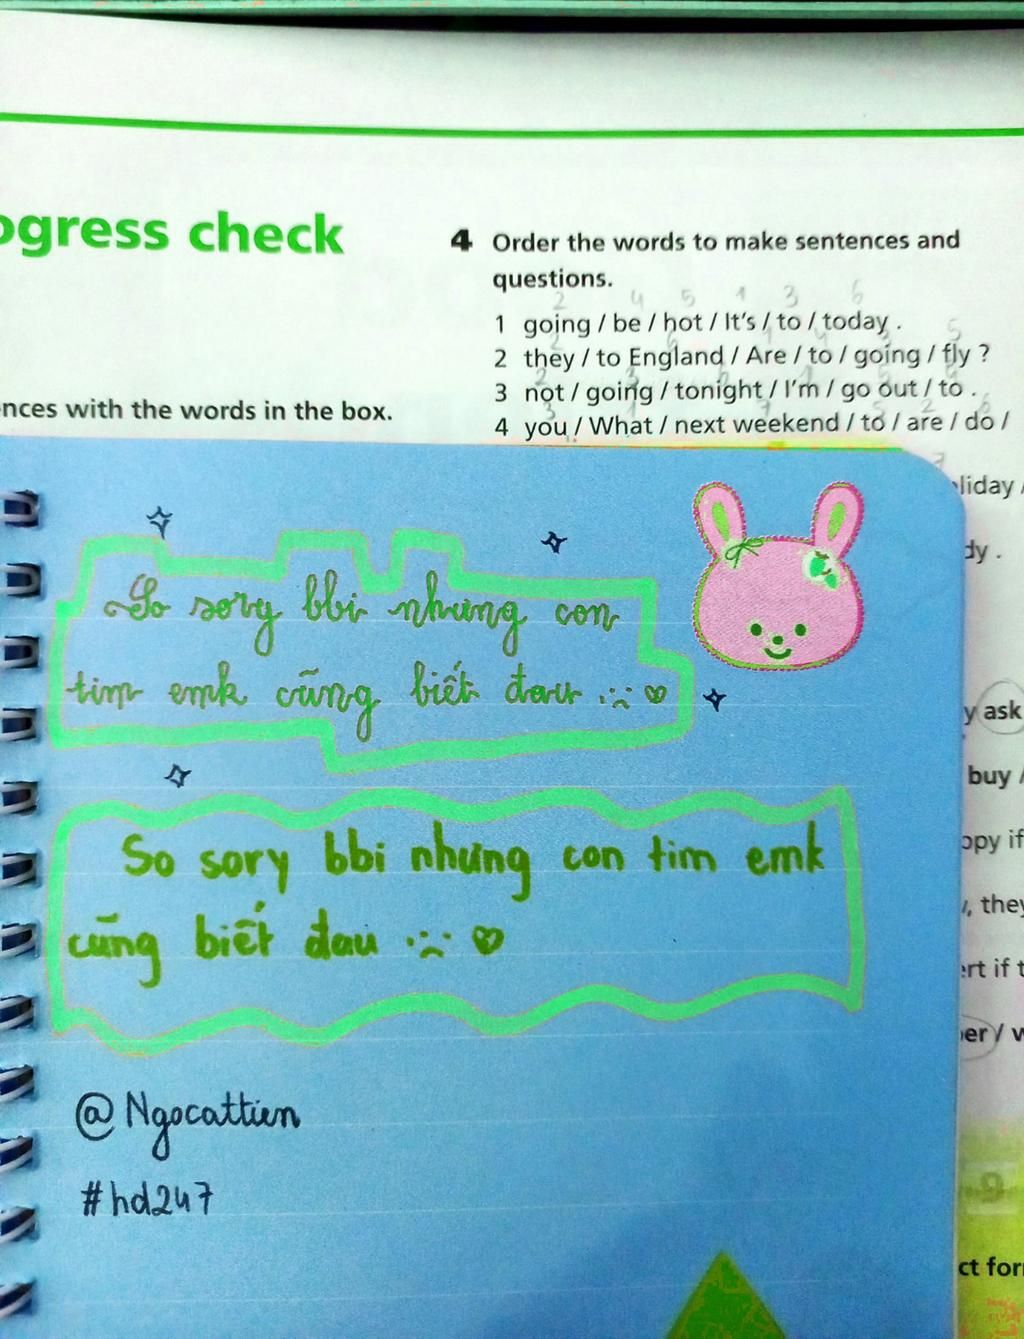 ogress check
4 Order the words to make sentences and
questions.
2 4 5 1 3 6
1 going / be / hot / It's / to / today .
2 they / to England / Are / to / going / fly ?
3 not / going / tonight / I'm / go out / to .
4 you / What / next weekend / to / are / do /
nces with the words in the box.
liday /
dy .
So sory bbi nhưng con
tim emk cũng biết đau .:☹ ♡
So sory bbi nhưng con tim emk
cũng biết đau ☹ ♡
@Ngocattien
#hd247
y ask
buy /
ppy if
, they
ert if t
er / w
9
ct for